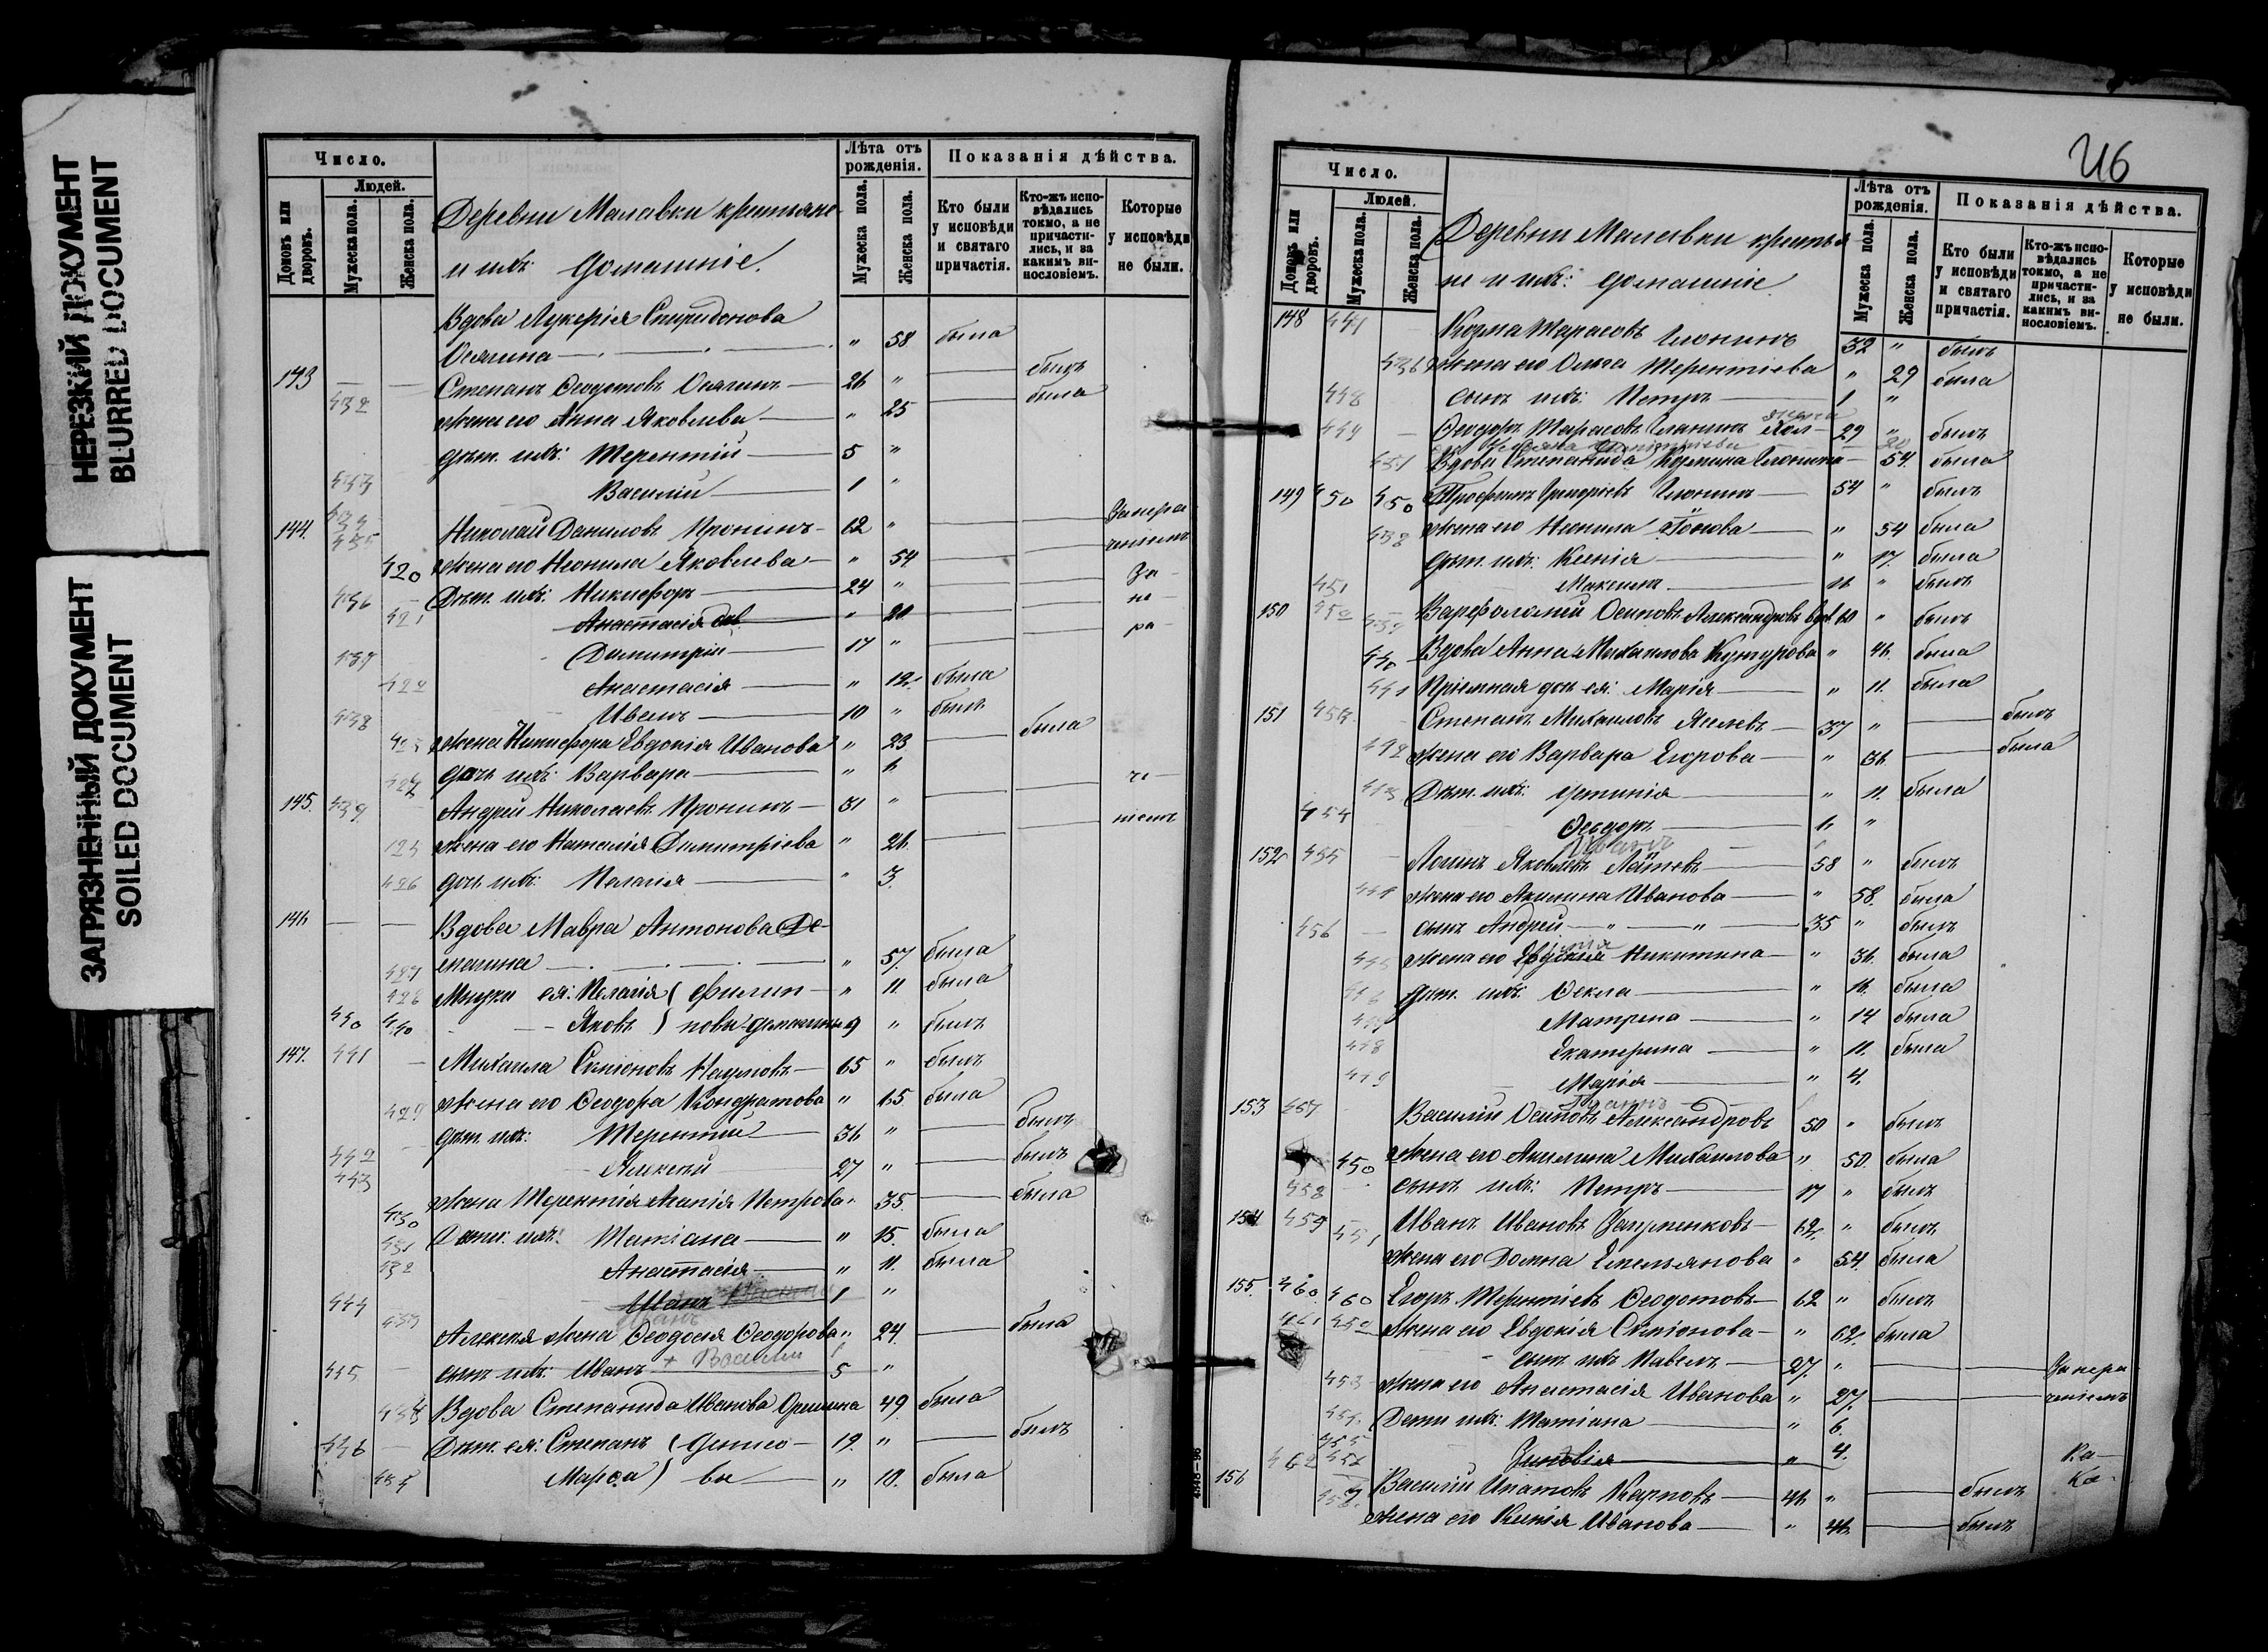 НЕРЕЗКИЙ ДОКУМЕНТ
BLURRED DOCUMENT
ЗАГРЯЗНЕННЫЙ ДОКУМЕНТ
SOILED DOCUMENT
Число.
Людей.
Домовъ или дворовъ.
Мужеска пола.
Женска пола.
Деревни Малавки крестьяне
и ихъ домашніе.
Лѣта отъ рожденія.
Мужеска пола.
Женска пола.
Показанія дѣйства.
Кто были у исповѣди и святаго причастія.
Кто-жъ исповѣдались токмо, а не причастились, и за какимъ винословіемъ.
Которые у исповѣди не были.
Вдова Лукерія Спиридонова
" 58 была
143 432 Степанъ Ѳеодотовъ 26 " — былъ
жена его Анна Яковлева — " 25 — была
дѣт. ихъ: Терентій — 5 "
433 Василій — 1 "
144. 435 Николай Даниловъ Пронинъ — 62 " — — Занера
420 жена его Неонила Яковлева — " 54 — — чніемъ
436 Дѣт. ихъ: Никифоръ — 24 " — — За
421 Анастасія " 20 — — не
Димитрій — 17 " — — ра
422 Анастасія — " 12. была
438 Ивенъ — 10 " былъ
жена Никифора Евдокія Иванова " 23 — была
дочь ихъ: Варвара — " 1
145. 439 Андрей Николаевъ Пронинъ — 31 " — — че
жена его Наталія Димитріева " 26. — — ніемъ
426 дочь ихъ: Пелагія — " 3.
146 — — Вдова Мавра Антонова Де
" 57. была
428 Внуки ея: Пелагія ( Филип — " 11 была
440 Яковъ ) 9 " былъ
147. 441 — Михаила Симіоновъ Наумовъ — 65 " былъ
429 жена его Ѳеодора Кондратова " 65 была
дѣт. ихъ: Терентій 36 " — былъ
442
443 Алексѣй 27 " — былъ
430 жена Терентія Агапія Петрова " 35. — была
431 Дѣти ихъ: Татіана — " 15. была
432 Анастасія — " 11. была
444 Иванъ 1 "
433 Алексѣя жена Ѳеодосія Ѳеодорова " 24. — была
445 — сынъ ихъ: Иванъ + Василій 5 "
Вдова Степанида Иванова 49. была
446 — Дѣт. ея: Степанъ ( Денисо — 19. " — былъ
Марѳа ) вы " 10. была
46
Число.
Людей.
Домовъ или дворовъ.
Мужеска пола.
Женска пола.
Деревни Малавки крестья
не и ихъ: домашніе.
Лѣта отъ рожденія.
Мужеска пола.
Женска пола.
Показанія дѣйства.
Кто были у исповѣди и святаго причастія.
Кто-жъ исповѣдались токмо, а не причастились, и за какимъ винословіемъ.
Которые у исповѣди не были.
148 447 Козма Тарасовъ 32 " былъ
436 жена его Ольга Терентіева " 29 была
448 сынъ ихъ: Петръ — 1 "
449 — Ѳеодоръ Тарасовъ 29 " былъ
Вдова Степанида Козмина — 54. была
149 450 450 Трофимъ Григорьевъ 54 " былъ
438 жена его Неонила " 54 была
дѣт. ихъ: Ксенія — " 17. была
451 Максимъ — 11 " былъ
150 452 Варѳоломей Осиповъ Александровъ вдов. 60 " былъ
440 Вдова Анна Михаилова " 46. была
441 Пріемная дочь ея: Марія — " 11. была
151 453 Степанъ Михаиловъ 37 " — былъ
жена его Варвара Егорова — " 36. — была
443 Дѣт. ихъ: Устинія — " 11. была
454 Ѳеодоръ — 1. "
Иванъ
152 455 — Логинъ Яковлевъ 58 " былъ
жена его Акилина Иванова — " 58. была
456 — сынъ Андрей — " — " — 35 " былъ
жена его Никитина — " 36. была
446 дѣт. ихъ: Ѳекла — " 16. была
Матрена — " 14 была
448 Екатерина — " 11. была
449 Марія — " 4.
153 457 Василій Осиповъ Александровъ 50 " былъ
450 жена его Акилина Михаилова " 50. была
458 сынъ ихъ: Петръ — 17 " былъ
154 459 451 Иванъ Ивановъ 62. " былъ
жена его Домна Емельянова " 54. была
155. 460 460 Егоръ Терентіевъ Ѳеодотовъ — 62 " былъ
461 452 жена его Евдокія Симіонова — " 62. была
сынъ ихъ Павелъ — 27. " — — Занера
453 жена его Анастасія Иванова " 27. — — ченіемъ
454. Дѣти ихъ: Татіана — " 6.
455 Зиновія — " 4.
156 462 Василій Ипатовъ Карповъ — 46 " — былъ
жена его Ксенія Иванова — " 46. — былъ
4348—96